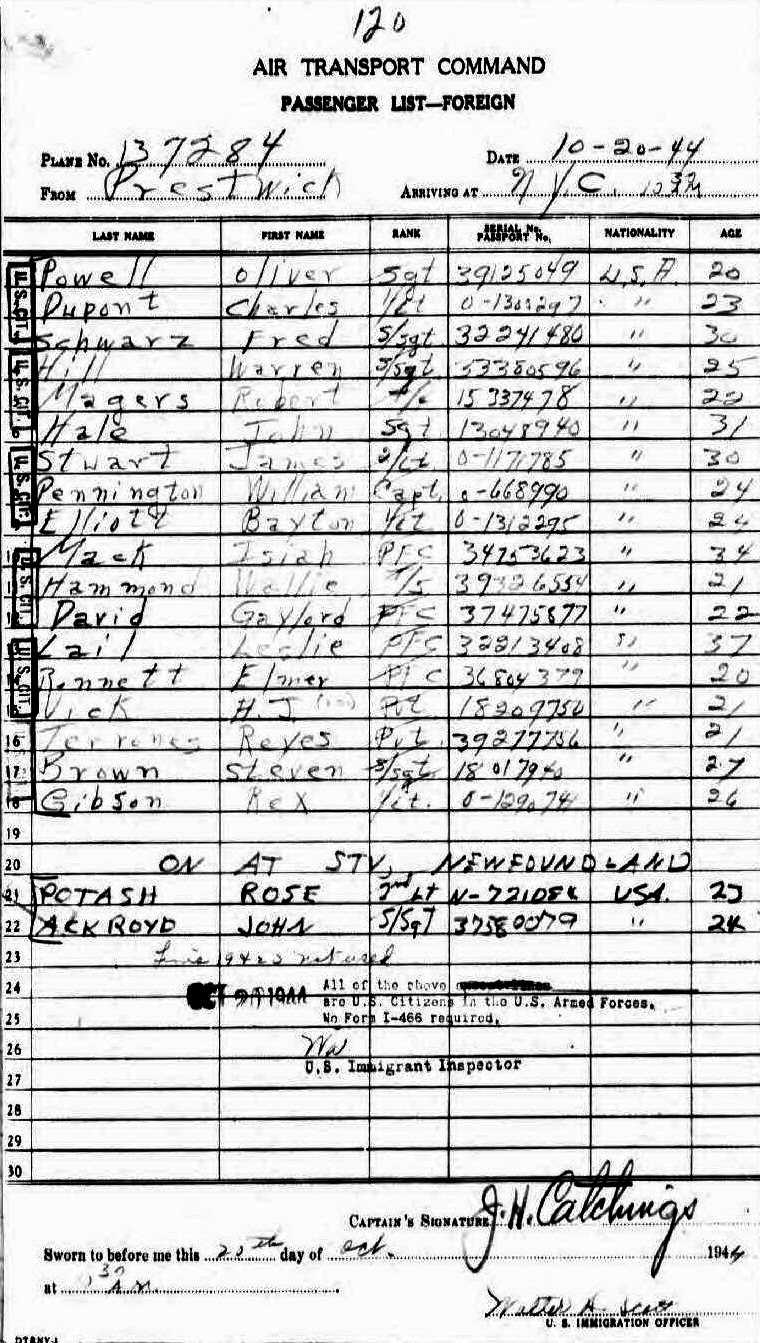 120
AIR TRANSPORT COMMAND
PASSENGER LIST—FOREIGN
PLANE No. 137284 DATE 10-20-44
FROM Prestwick ARRIVING AT N.Y.C.
LAST NAME FIRST NAME RANK SERIAL No. PASSPORT No. NATIONALITY AGE
Powell Oliver Sgt 39125049 U.S.A. 20
Dupont Charles 1/Lt 0-1303297 " 23
Schwarz Fred S/Sgt 32241480 " 30
Hill Warren S/Sgt 53380596 " 25
Magers Robert 15337478 " 22
Hale John Sgt 13048940 " 31
Stwart James 2/Lt 0-1171785 " 30
Pennington William Capt. 0-668990 " 24
Elliott Baxton 1/Lt 0-1312295 " 24
Mack Isiah PFC 34753623 " 34
Hammond Wallie T/5 39326554 " 21
David Gaylord PFC 37475877 " 22
Lail Leslie PFC 32213408 " 37
Bennett Elmer PFC 36804379 " 20
Vick H.J. Pvt 18209756 " 21
16 Terrones Reyes Pvt. 39277756 " 21
17 Brown Steven S/Sgt 18017940 " 27
18 Gibson Rex 1/Lt. 0-1290741 " 26
19
20 ON AT STV, NEWFOUNDLAND
21 POTASH ROSE 2nd Lt N-721084 USA. 23
22 ACKROYD JOHN S/SgT 37580079 " 24
23 Line 19 & 20 not used
24 OCT 20 1944 All of the above
25 are U.S. Citizens in the U.S. Armed Forces.
No Form I-466 required.
26
27 U.S. Immigrant Inspector
28
29
30
CAPTAIN'S SIGNATURE J.H. Catchings
Sworn to before me this 20th day of Oct. 1944
at A.M.
Walter A. Scott
U. S. IMMIGRATION OFFICER